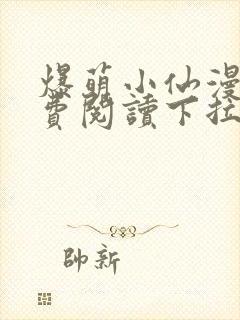 爆萌小仙漫
費閱讀下拉
帥新